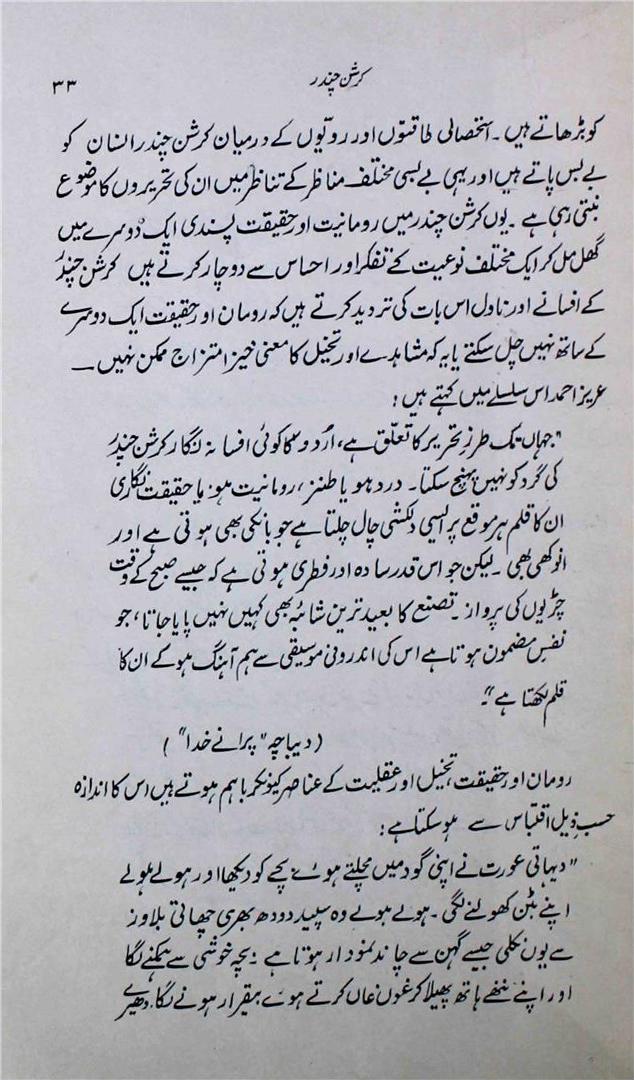 کرشن چندر
۳۳
کو بڑھاتے ہیں۔ استحصالی طاقتوں اور رویّوں کے درمیان کرشن چندر انسان کو
بے بس پاتے ہیں اور یہی بے بسی مختلف مناظر کے تناظر میں ان کی تحریروں کا موضوع
بنتی رہی ہے۔ یوں کرشن چندر میں رومانیت اور حقیقت پسندی ایک دوسرے میں
گھل مل کر ایک مختلف نوعیت کے تفکر اور احساس سے دوچار کرتے ہیں کرشن چندر
کے افسانے اور ناول اس بات کی تردید کرتے ہیں کہ رومان اور حقیقت ایک دوسرے
کے ساتھ نہیں چل سکتے یا یہ کہ مشاہدے اور تخیل کا معنی خیز امتزاج ممکن نہیں —
عزیز احمد اس سلسلے میں کہتے ہیں:
"جہاں تک طرزِ تحریر کا تعلق ہے، اُردو کا کوئی افسانہ نگار کرشن چندر
کی گرد کو نہیں پہنچ سکتا۔ درد ہو یا طنز، رومانیت ہو یا حقیقت نگاری
ان کا قلم ہر موقع پر ایسی دلکشی چال چلتا ہے جو بانکی بھی ہوتی ہے اور
انوکھی بھی۔ لیکن جو اس قدر سادہ اور فطری ہوتی ہے کہ جیسے صبح کے وقت
چڑیوں کی پرواز۔ تصنع کا بعید ترین شائبہ بھی کہیں نہیں پایا جاتا، جو
نفسِ مضمون ہوتا ہے اس کی اندرونی موسیقی سے ہم آہنگ ہو کے ان کا
قلم لکھتا ہے"۔
(دیباچہ "پرانے خدا")
رومان اور حقیقت، تخیل اور عقلیت کے عناصر کیونکر باہم ہوتے ہیں اس کا اندازہ
حسبِ ذیل اقتباس سے ہو سکتا ہے:
"دیہاتی عورت نے اپنی گود میں مچلتے ہوئے بچے کو دیکھا اور ہولے ہولے
اپنے بٹن کھولنے لگی۔ ہولے ہولے وہ سپید دودھ بھری چھاتی بلاوز
سے یوں نکلی جیسے گہن سے چاند نمودار ہوتا ہے۔ بچہ خوشی سے ہمکنے لگا
اور اپنے ننھے ہاتھ پھیلا کر غوں غاں کرتے ہوئے بیقرار ہونے لگا۔ دھیرے